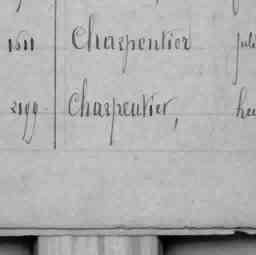 1611 Charpentier Juli
2199 Charpentier,